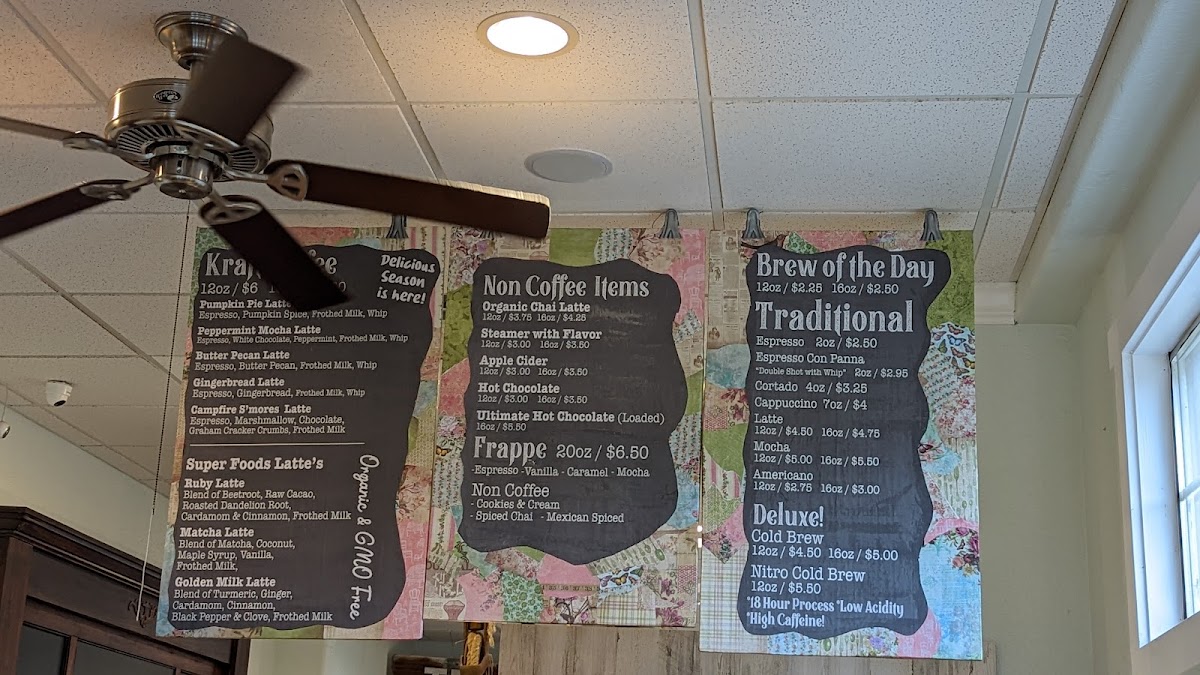 12oz / $6
Delicious
Season
is here!
Pumpkin Pie Latte
Espresso, Pumpkin Spice, Frothed Milk, Whip
Peppermint Mocha Latte
Espresso, White Chocolate, Peppermint, Frothed Milk, Whip
Butter Pecan Latte
Espresso, Butter Pecan, Frothed Milk, Whip
Gingerbread Latte
Espresso, Gingerbread, Frothed Milk, Whip
Campfire S'mores Latte
Espresso, Marshmallow, Chocolate,
Graham Cracker Crumbs, Frothed Milk
Super Foods Latte's
Ruby Latte
Blend of Beetroot, Raw Cacao,
Roasted Dandelion Root,
Cardamom & Cinnamon, Frothed Milk
Matcha Latte
Blend of Matcha, Coconut,
Maple Syrup, Vanilla,
Frothed Milk,
Golden Milk Latte
Blend of Turmeric, Ginger,
Cardamom, Cinnamon,
Black Pepper & Clove, Frothed Milk
Organic & GMO Free
Non Coffee Items
Organic Chai Latte
12oz / $3.75 16oz / $4.25
Steamer with Flavor
12oz / $3.00 16oz / $3.50
Apple Cider
12oz / $3.00 16oz / $3.50
Hot Chocolate
12oz / $3.00 16oz / $3.50
Ultimate Hot Chocolate (Loaded)
16oz / $5.50
Frappe 20oz / $6.50
-Espresso -Vanilla - Caramel - Mocha
Non Coffee
- Cookies & Cream
- Spiced Chai - Mexican Spiced
Brew of the Day
12oz / $2.25 16oz / $2.50
Traditional
Espresso 2oz / $2.50
Espresso Con Panna
"Double Shot with Whip" 2oz / $2.95
Cortado 4oz / $3.25
Cappuccino 7oz / $4
Latte
12oz / $4.50 16oz / $4.75
Mocha
12oz / $5.00 16oz / $5.50
Americano
12oz / $2.75 16oz / $3.00
Deluxe!
Cold Brew
12oz / $4.50 16oz / $5.00
Nitro Cold Brew
12oz / $5.50
*18 Hour Process *Low Acidity
*High Caffeine!